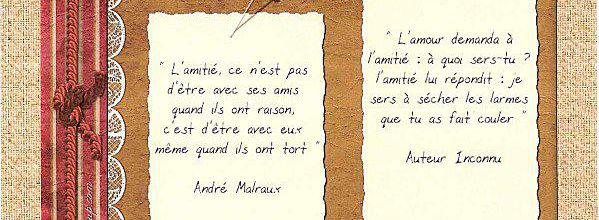 " L'amitié, ce n'est pas
d'être avec ses amis
quand ils ont raison,
c'est d'être avec eux
même quand ils ont tort "
André Malraux
" L'amour demanda à
l'amitié : à quoi sers-tu ?
l'amitié lui répondit : je
sers à sécher les larmes
que tu as fait couler "
Auteur Inconnu